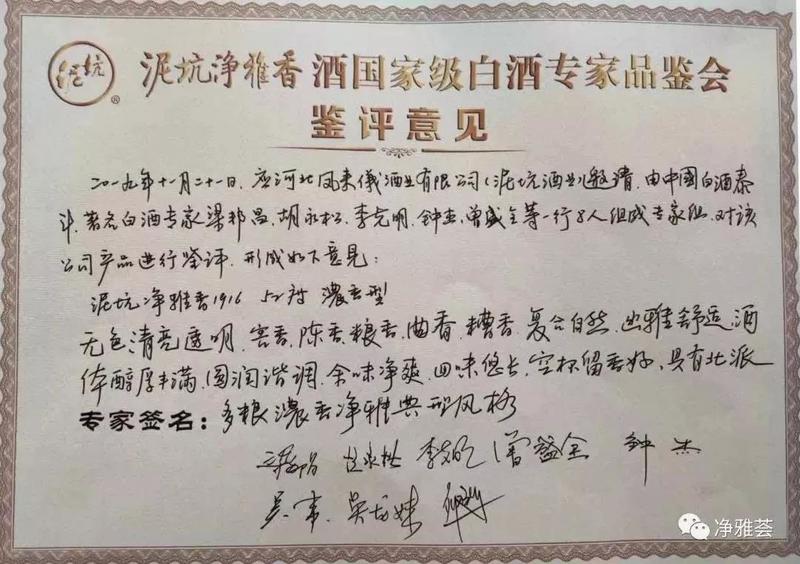 泥坑
®
泥坑净雅香酒国家级白酒专家品鉴会
鉴评意见
二〇一九年十一月二十一日,应河北凤来儀酒业有限公司(泥坑酒业)邀请,由中國白酒泰
斗、著名白酒专家梁邦昌、胡永松、李克明、钟杰、曾盛全等一行8人组成专家组,对该
公司产品进行鉴评,形成如下意见:
泥坑净雅香1916 52度 濃香型
无色清亮透明、窖香、陈香、粮香、曲香、糟香、复合自然、幽雅舒适、酒
体醇厚丰满、圆润谐调、余味净爽、回味悠长、空杯留香好、具有北派
专家签名:多粮濃香净雅典型风格
胡永松 李克明 曾盛全 钟杰
净雅荟